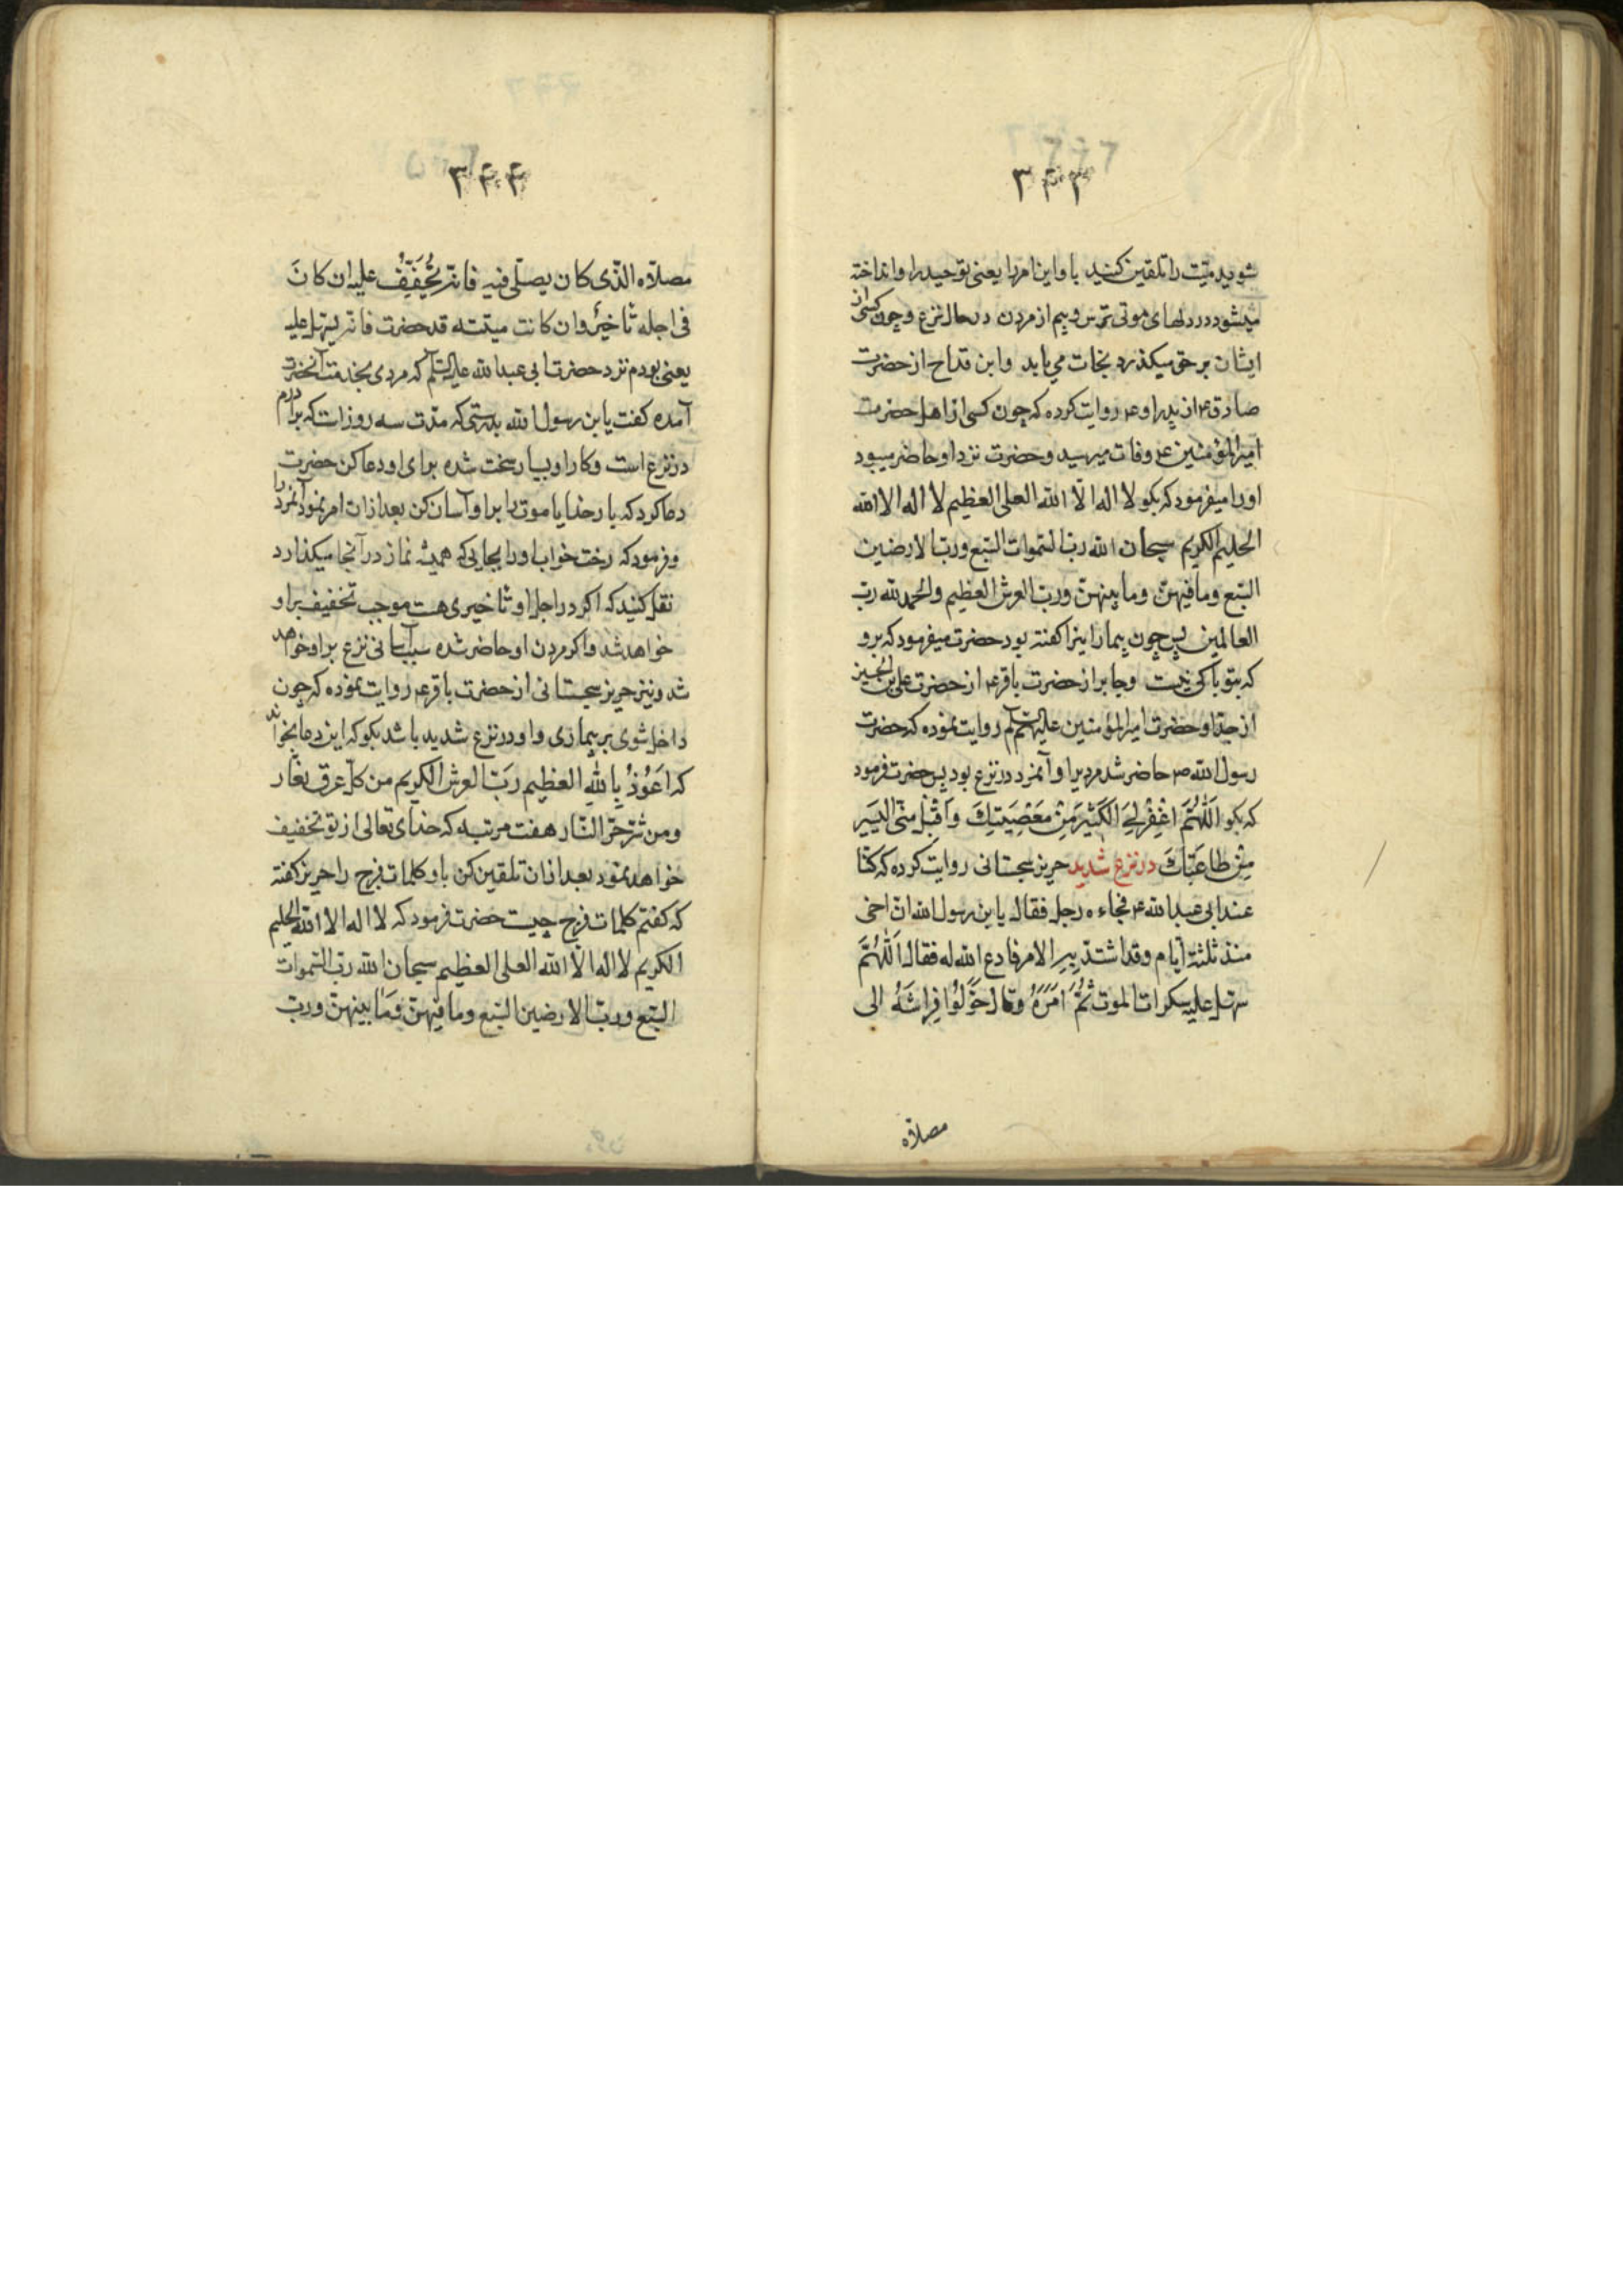 ۳۴۳
شوید میّت را تلقین کنید باو این امر را یعنی توحید را و انداخته
میشود در دلهای موتی ترس و بیم از مردن در حال نزع و چون کسی از
ایشان بر حق میکذرد نجات می یابد و ابن قداح از حضرت
صادق ع از پدر او ع روایت کرده که چون کسی از اهل حضرت
امیرالمؤمنین ع وفات میرسید و حضرت نزد او حاضر میبود
او را میفرمود که بکو لا اله الّا الله العلی العظیم لا اله الا الله
الحلیم الکریم سبحان الله ربّ السّموات السّبع و ربّ الارضین
السّبع وما فیهنّ وما بینهنّ وربّ العرش العظیم والحمد لله ربّ
العالمین پس چون بیمار اینرا کفته بود حضرت میفرمود که برو
که بتو باکی نیست وجابر از حضرت باقر ع از حضرت علی بن الحسین
از جدّ او حضرت امیرالمؤمنین علیهم السلام روایت نموده که حضرت
رسول الله ص حاضر شد مردیرا و آنمرد در نزع بود پس حضرت فرمود
که بکو اَللّٰهُمَّ اغْفِرْ لِیَ الْکَثِیْرَ مِنْ مَعْصِیَتِكَ وَاقْبَلْ مِنّی الیَسِیر
مِنْ طَاعَتِكَ در نزع شدید حریز سجستانی روایت کرده که کنّا
عند ابی عبد الله ع فجاءه رجل فقال یابن رسول الله انّ اخی
منذ ثلثة ایّام وقد اشتدّ بِهِ الامر فادع الله له فقال اَللّٰهُمَّ
سهّل علیه سکرات الموت ثُمَّ اَمَرَهُ وقال حَوِّلُوا فِرَاشَهُ الی
مصلاّه
۳۴۴
مصلاّه الّذی کان یصلّی فیه فانّه یُخَفَّفُ علیه ان کانَ
فی اجله تأخیرٌ وان کانت میتته قد حضرت فانّه یسهل علیه
یعنی بودم نزد حضرت ابی عبد الله علیه السلام که مردی بخدمت آنحضرت
آمده کفت یابن رسول الله بدرستی که مدّت سه روز است که برادرم
در نزع است و کار او بسیار سخت شده برای او دعا کن حضرت
دعا کرد که بار خدایا موت را بر او آسان کن بعد از ان امر نمود آنمرد را
و فرمود که رخت خواب او را بجایی که همیشه نماز در آنجا میکذارد
نقل کنید که اکر در اجل او تأخیری هست موجب تخفیف بر او
خواهد شد و اکر مردن او حاضر شده سبب آسانی نزع بر او خواهد
شد ونیز حریز سجستانی از حضرت باقر ع روایت نموده که چون
داخل شوی بر بیماری و او در نزع شدید باشد بکو که این دعا بخواند
که اَعُوْذُ بِاللهِ العظیم رَبّ العرش الکریم من کلّ عرق نغّار
ومن شرّ حرّ النّار هفت مرتبه که خدای تعالی از تو تخفیف
خواهد نمود بعد از ان تلقین کن باو کلمات فرج را حریز کفته
که کفتم کلمات فرج چیست حضرت فرمود که لا اله الا الله الحلیم
الکریم لا اله الّا الله العلی العظیم سبحان الله ربّ السّموات
السّبع وربّ الارضین السّبع وما فیهنّ وَمَا بینهنّ وربّ